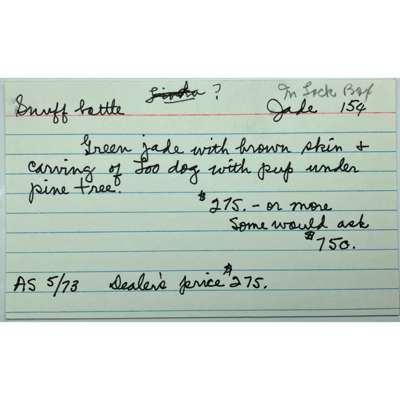 In Lock Box
Snuff bottle ? Jade 154
Green jade with brown skin &
carving of Foo dog with pup under
pine tree.
$275. - or more
Some would ask
$750.
AS 5/73 Dealer's price $275.